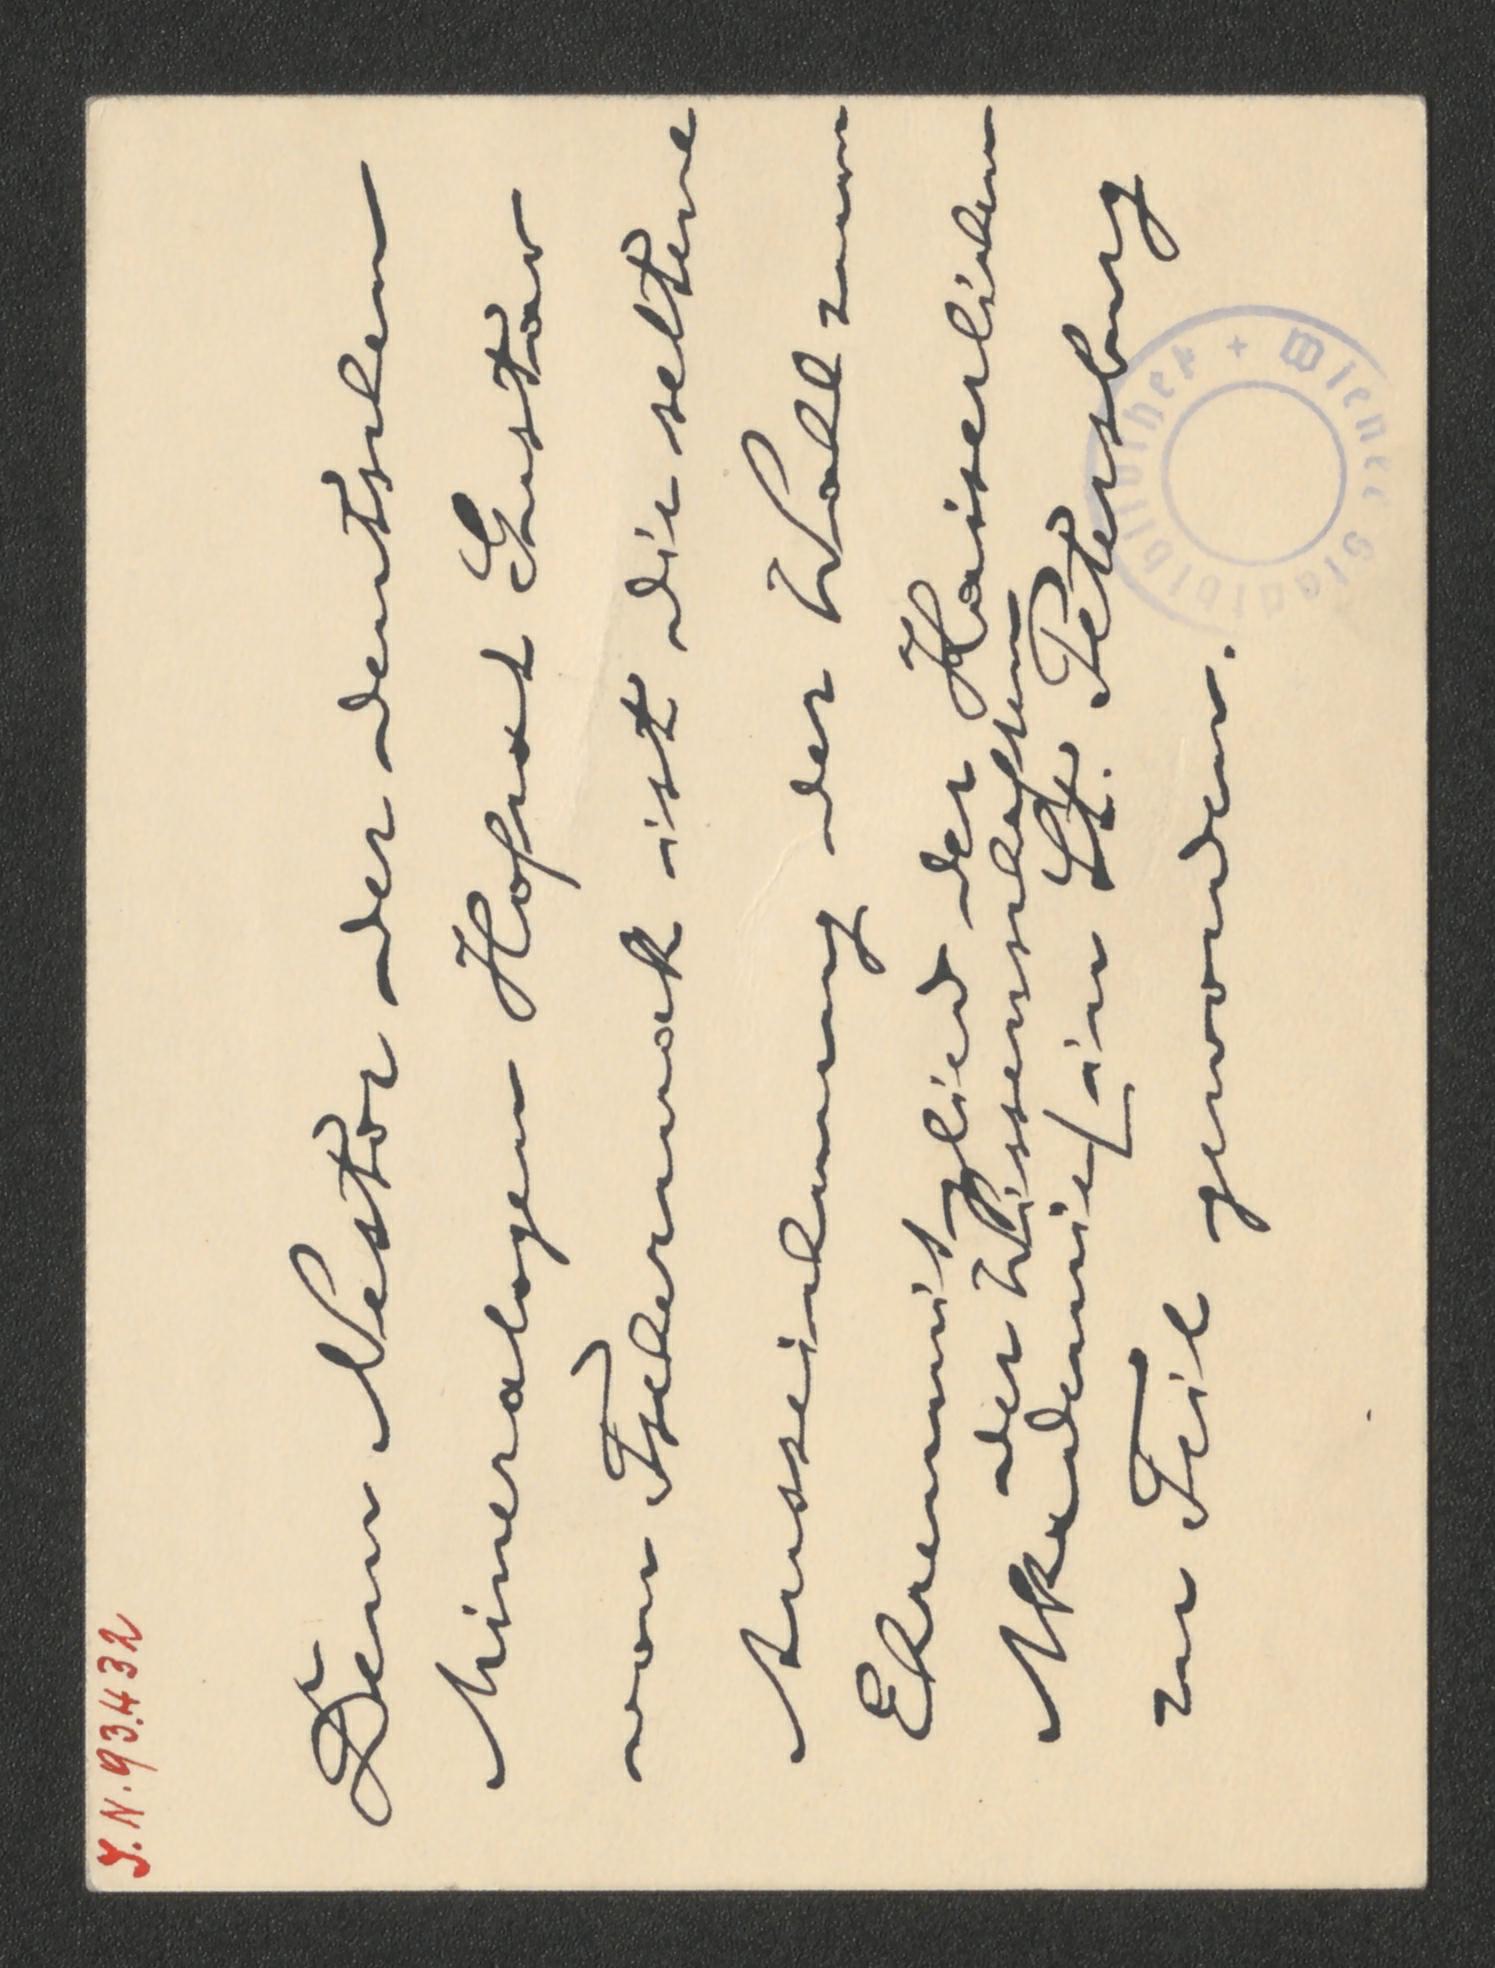 I.N. 93.432
Dem Nestor der deutschen
Mineralogen Hofrat Gustav
von Tschermak ist die seltene
Auszeichnung der Wahl zum
Ehrenmitglied der Kaiserlichen
der Wissenschaften
Akademie in St. Petersburg
zu Teil geworden.
Wiener Stadtbibliothek +